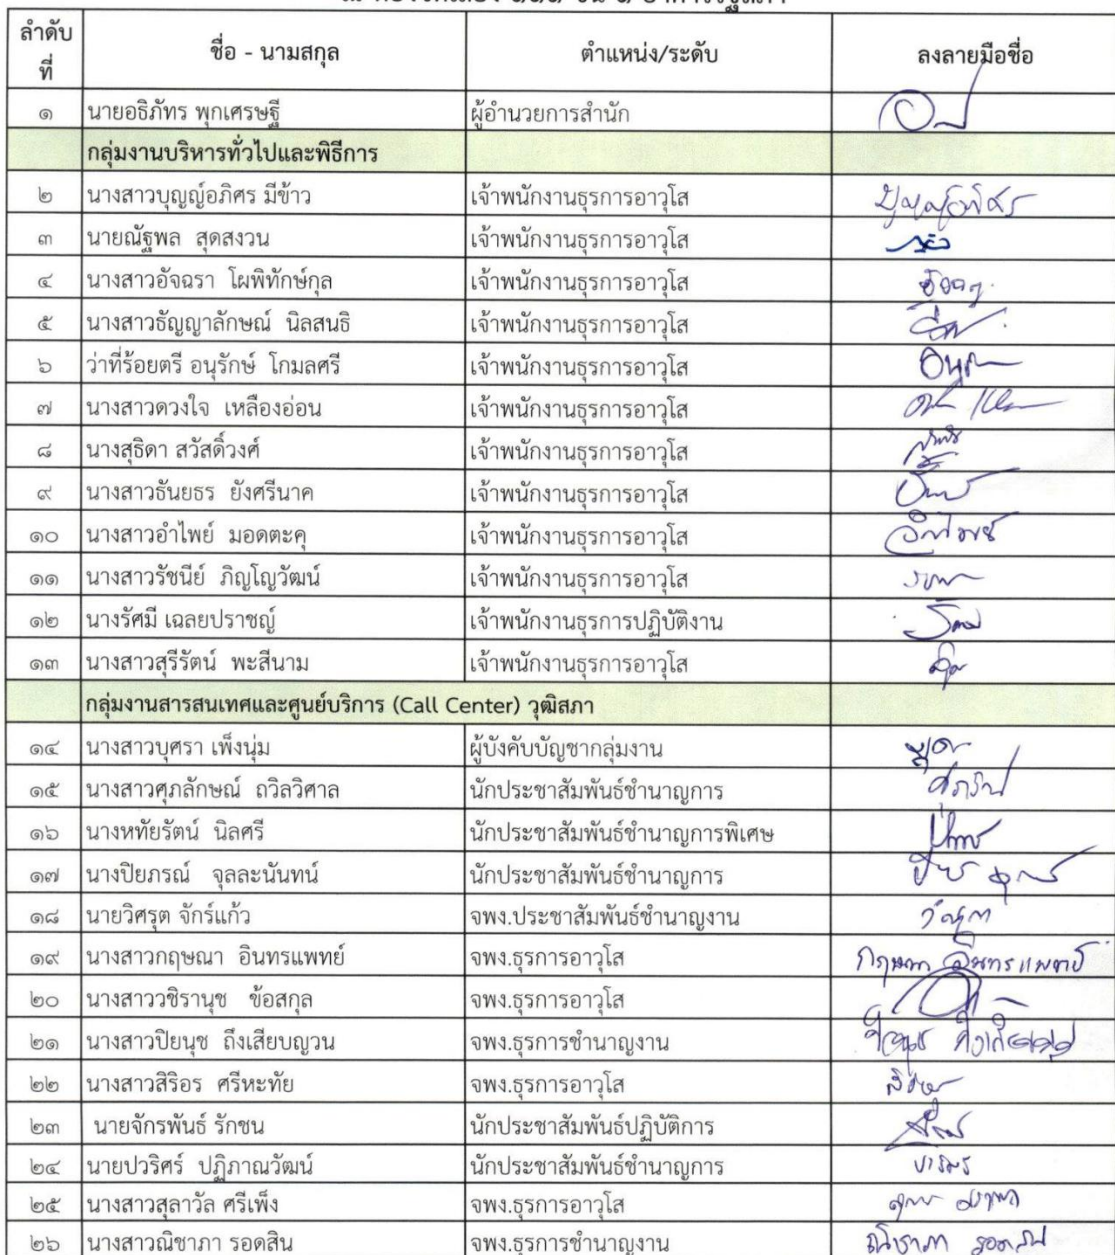 ลำดับที่ ชื่อ - นามสกุล ตำแหน่ง/ระดับ ลงลายมือชื่อ
๑ นายอธิภัทร พุกเศรษฐี ผู้อำนวยการสำนัก
กลุ่มงานบริหารทั่วไปและพิธีการ
๒ นางสาวบุญญ์อภิศร มีข้าว เจ้าพนักงานธุรการอาวุโส
๓ นายณัฐพล สุดสงวน เจ้าพนักงานธุรการอาวุโส
๔ นางสาวอัจฉรา โผพิทักษ์กุล เจ้าพนักงานธุรการอาวุโส
๕ นางสาวธัญญาลักษณ์ นิลสนธิ เจ้าพนักงานธุรการอาวุโส
๖ ว่าที่ร้อยตรี อนุรักษ์ โกมลศรี เจ้าพนักงานธุรการอาวุโส
๗ นางสาวดวงใจ เหลืองอ่อน เจ้าพนักงานธุรการอาวุโส
๘ นางสุธิดา สวัสดิ์วงศ์ เจ้าพนักงานธุรการอาวุโส
๙ นางสาวธันยธร ยังศรีนาค เจ้าพนักงานธุรการอาวุโส
๑๐ นางสาวอำไพย์ มอดตะคุ เจ้าพนักงานธุรการอาวุโส
๑๑ นางสาวรัชนีย์ ภิญโญวัฒน์ เจ้าพนักงานธุรการอาวุโส
๑๒ นางรัศมี เฉลยปราชญ์ เจ้าพนักงานธุรการปฏิบัติงาน
๑๓ นางสาวสุรีรัตน์ พะสีนาม เจ้าพนักงานธุรการอาวุโส
กลุ่มงานสารสนเทศและศูนย์บริการ (Call Center) วุฒิสภา
๑๔ นางสาวบุศรา เพ็งนุ่ม ผู้บังคับบัญชากลุ่มงาน
๑๕ นางสาวศุภลักษณ์ ถวิลวิศาล นักประชาสัมพันธ์ชำนาญการ
๑๖ นางหทัยรัตน์ นิลศรี นักประชาสัมพันธ์ชำนาญการพิเศษ
๑๗ นางปิยภรณ์ จุลละนันทน์ นักประชาสัมพันธ์ชำนาญการ
๑๘ นายวิศรุต จักร์แก้ว จพง.ประชาสัมพันธ์ชำนาญงาน
๑๙ นางสาวกฤษณา อินทรแพทย์ จพง.ธุรการอาวุโส กฤษณา อินทรแพทย์
๒๐ นางสาววชิรานุช ข้อสกุล จพง.ธุรการอาวุโส
๒๑ นางสาวปิยนุช ถึงเสียบญวน จพง.ธุรการชำนาญงาน
๒๒ นางสาวสิริอร ศรีหะทัย จพง.ธุรการอาวุโส
๒๓ นายจักรพันธ์ รักชน นักประชาสัมพันธ์ปฏิบัติการ
๒๔ นายปวริศร์ ปฏิภาณวัฒน์ นักประชาสัมพันธ์ชำนาญการ
๒๕ นางสาวสุลาวัล ศรีเพ็ง จพง.ธุรการอาวุโส
๒๖ นางสาวณิชาภา รอดสิน จพง.ธุรการชำนาญงาน ณิชาภา รอดสิน